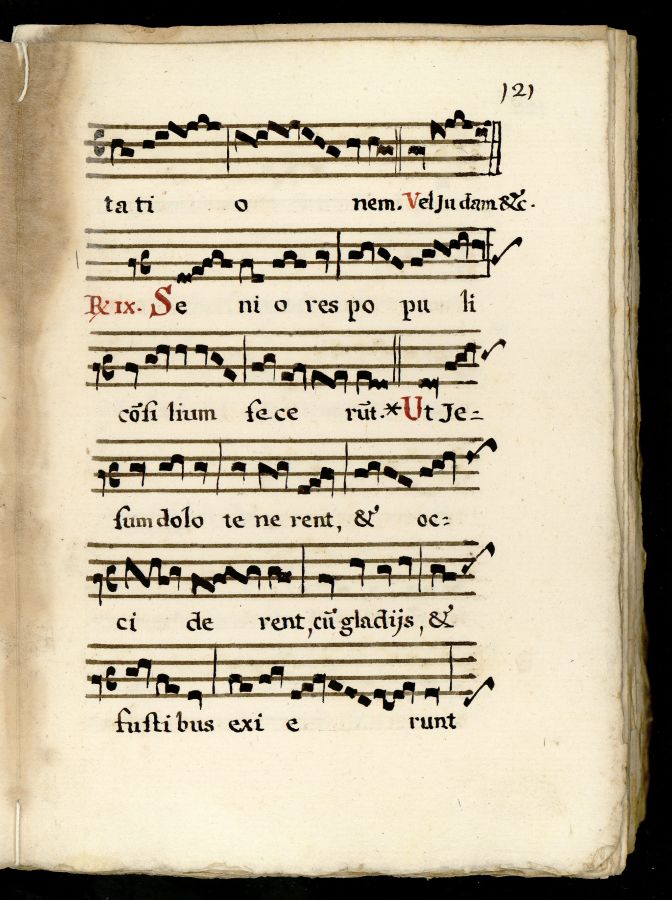 121
ta ti o nem. Vel Judam &c.
℞ IX. Se ni o res po pu li
cõsi lium fe ce rũt. * Ut Je=
sum dolo te ne rent, & oc=
ci de rent, cũ gladijs, &
fusti bus exi e runt